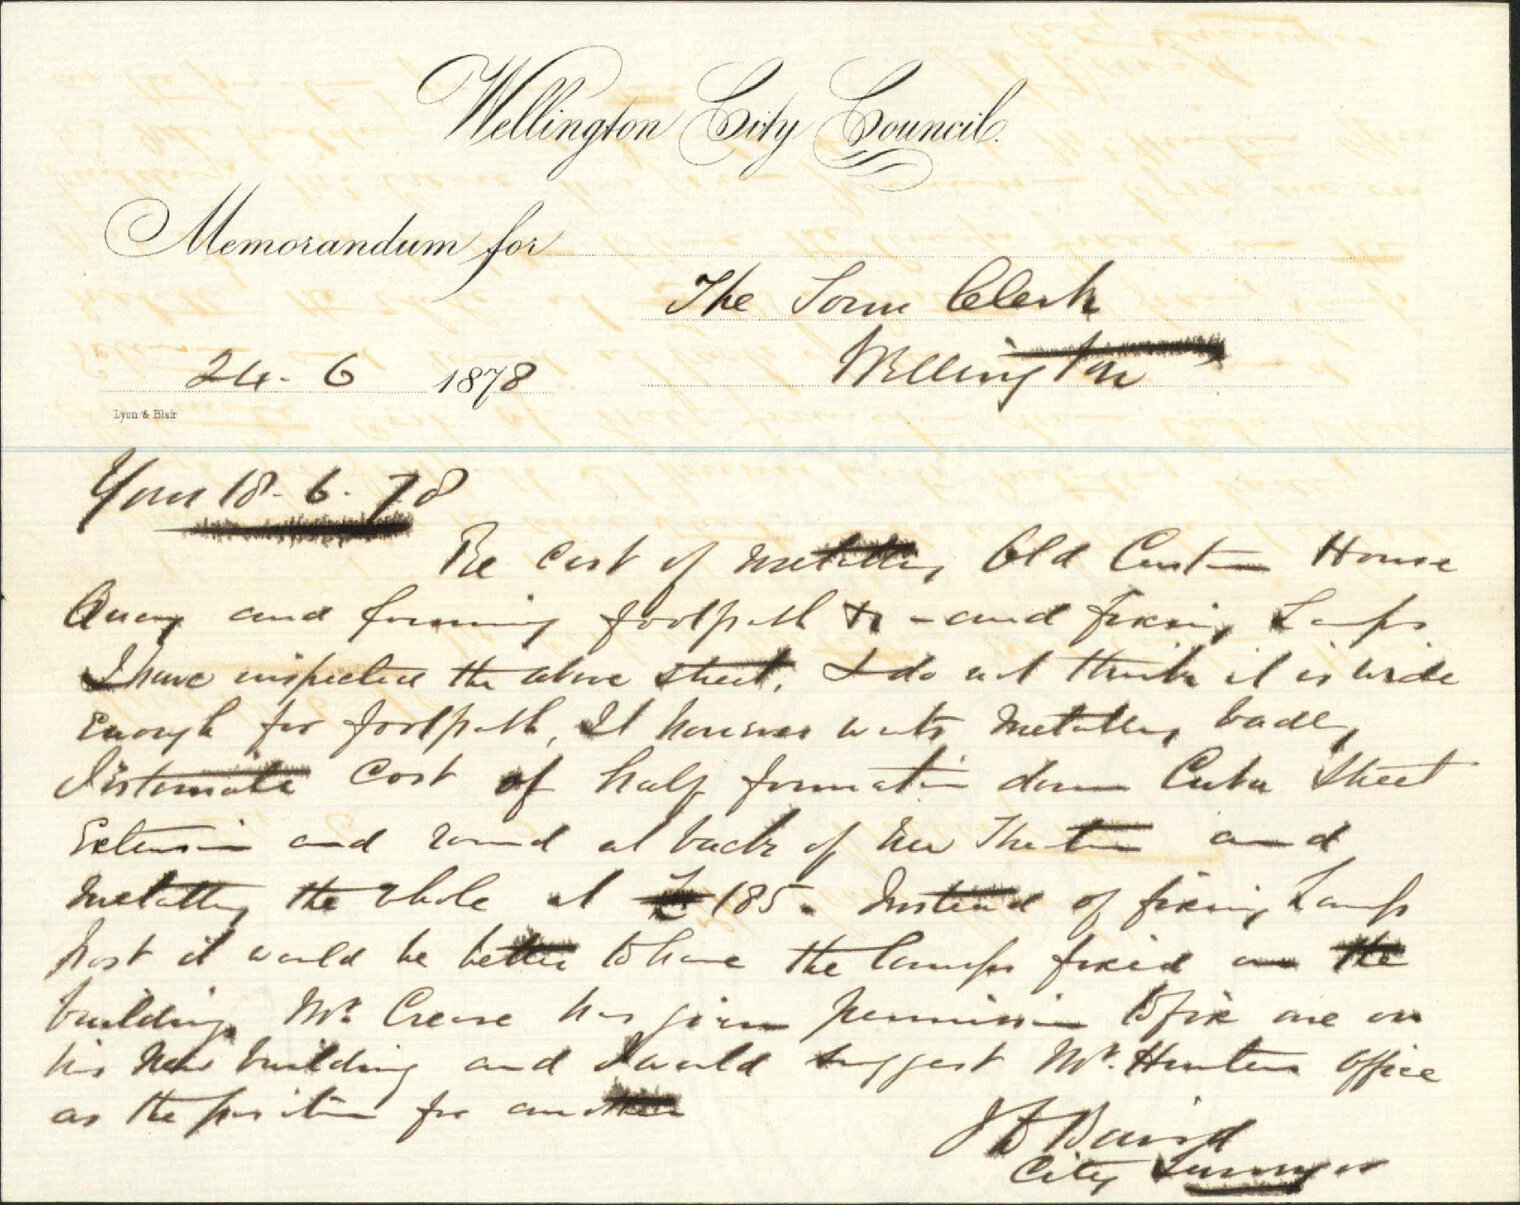 Wellington City Council.
Memorandum for
The Town Clerk
Wellington
24. 6 1878
Lyon & Blair
Yours 18. 6. 78
Re Cost of Metalling Old Custom House
Quay and forming footpath &c - and fixing Lamps
I have inspected the above street. I do not think it is wide
enough for footpath, It however wants Metalling badly
Cost of half formation down Cuba Street
Extension and round at back of New Theatre and
Metalling the whole at £185. Instead of fixing Lamp
Post it would be better to have the lamps fixed on the
buildings Mr. Crease has given permission to fix one on
his New building and I would suggest Mr. Hunters office
as the position for another
J D Baird
City Surveyor